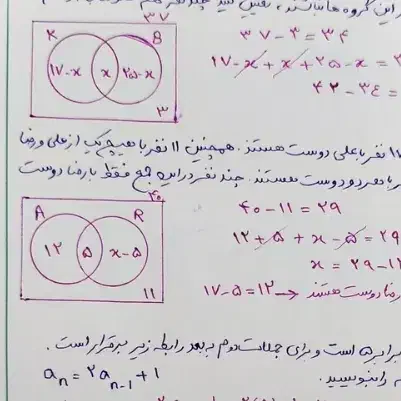 این گروه ها نباشند، تعیین کنید چند نفر هم
۳۷
K
B
۱۷-x
x
۲۵-x
۳
۳۷-۳=۳۴
۱۷-x+x+۲۵-x=۳
۴۲-۳۴=
۱۷ نفر با علی دوست هستند. همچنین ۱۱ نفر با هیچ یک از علی و رضا
با هر دو دوست هستند. چند نفر در این جمع فقط با رضا دوست
۴۰
A
R
۱۲
۵
x-۵
۱۱
۴۰-۱۱=۲۹
۱۲+۵+x-۵=۲۹
x=۲۹-۱۲
رضا دوست هستند → ۱۷-۵=۱۲
برابر ۵ است و برای جملات دوم به بعد رابطه زیر برقرار است.
را بنویسید.
aₙ=۲aₙ₋₁+۱